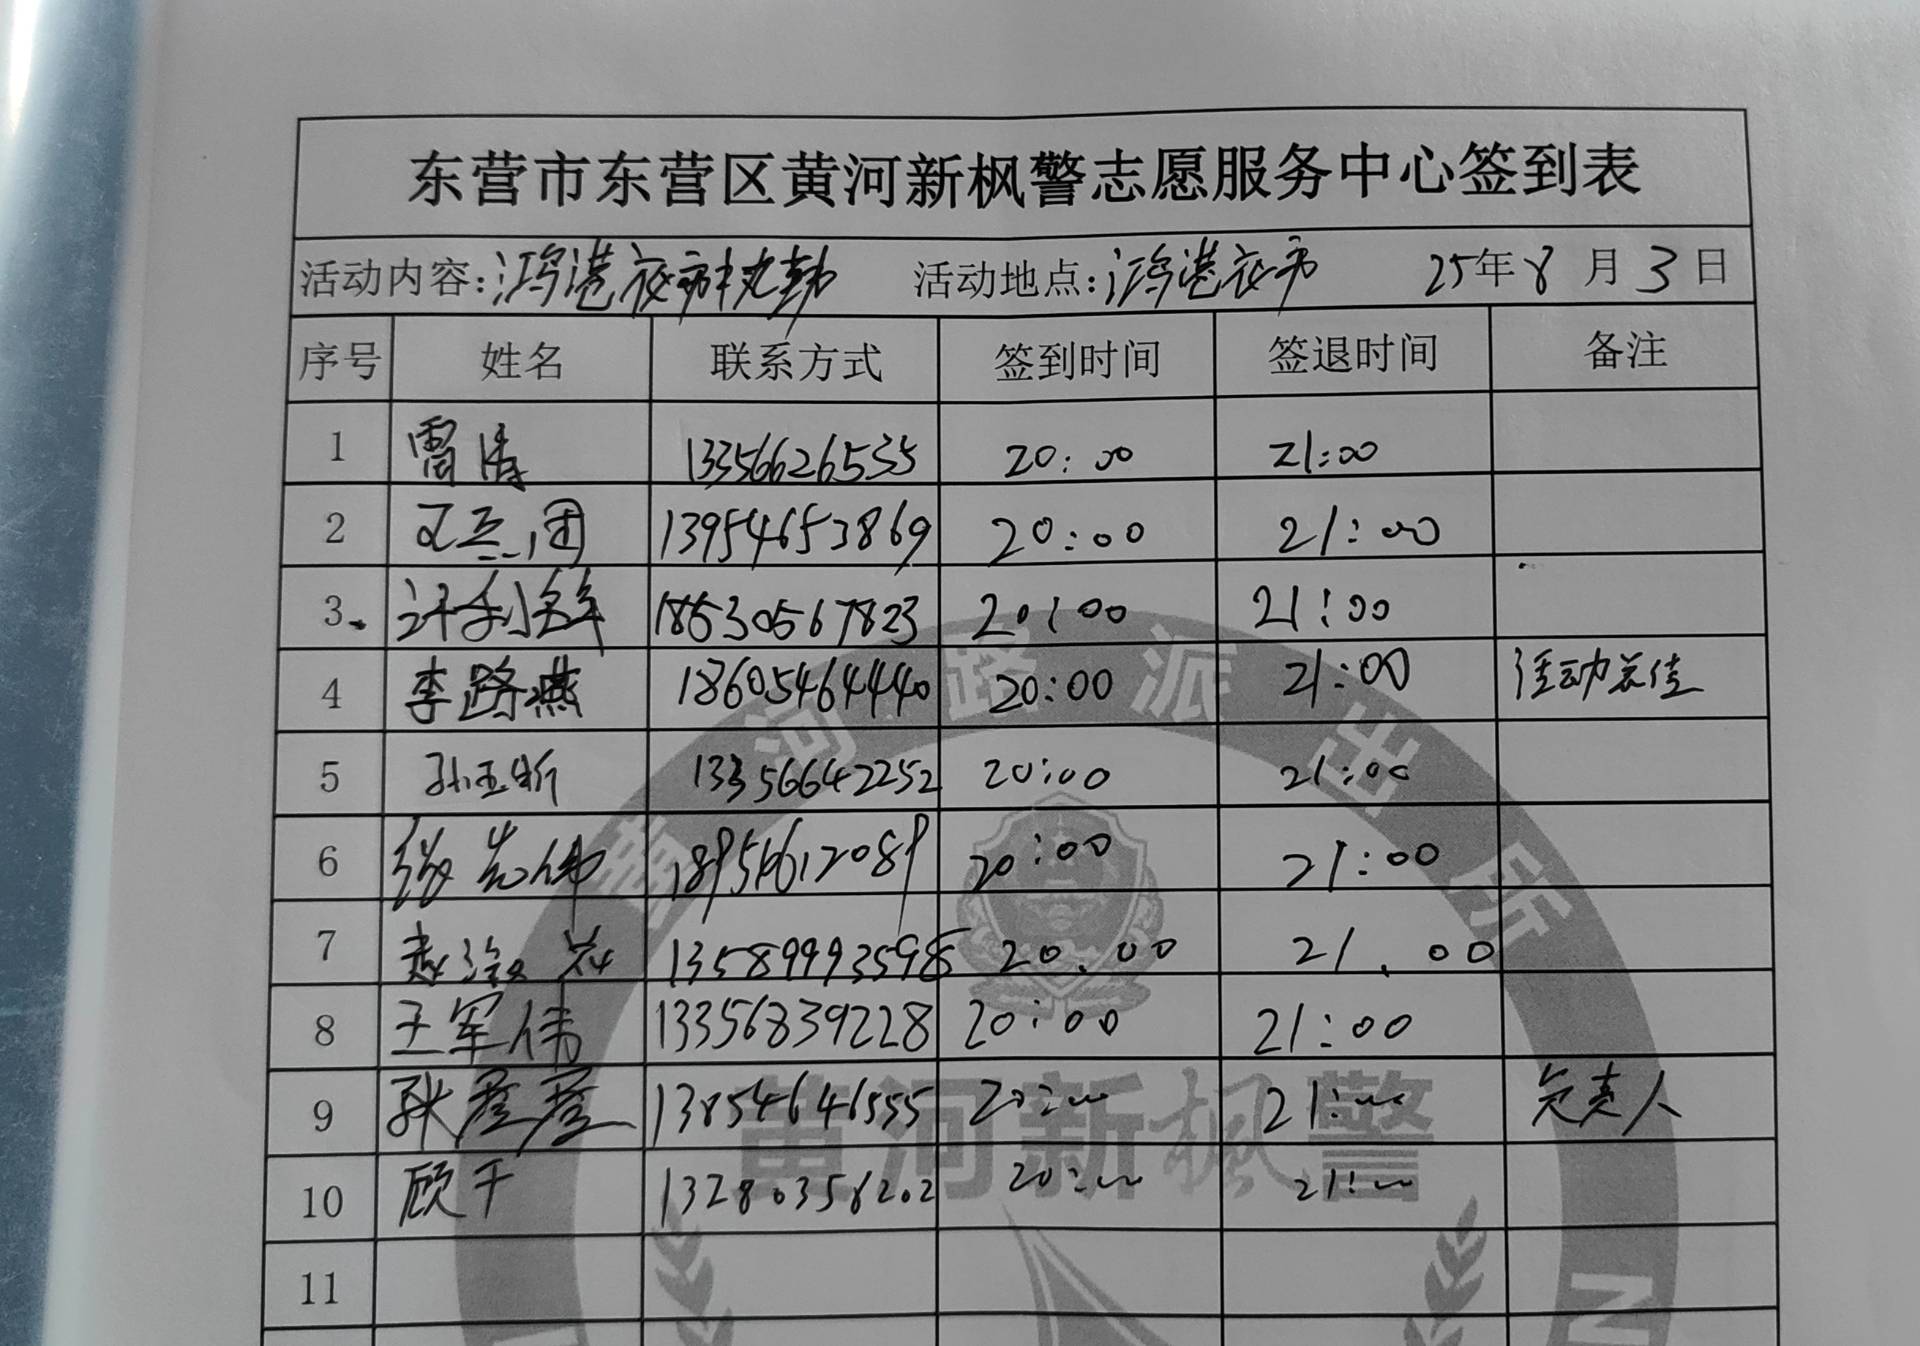 东营市东营区黄河新枫警志愿服务中心签到表
活动内容:鸿港夜市执勤 活动地点:鸿港夜市 25年8月3日
序号 姓名 联系方式 签到时间 签退时间 备注
1 雷涛 13356626535 20:00 21:00
2 13954653869 20:00 21:00
3 许利军 186530567823 20:00 21:00
4 李路燕 18605464440 20:00 21:00 活动宣传
5 孙亚昕 13356642252 20:00 21:00
6 张志伟 18954612089 20:00 21:00
7 赵 13589993598 20.00 21.00
8 王军伟 13356839228 20:00 21:00
9 耿彦彦 13854646555 20:00 21:00 负责人
10 顾千 13280358202 20:00 21:00
11
黄河路派出所
黄河新枫警